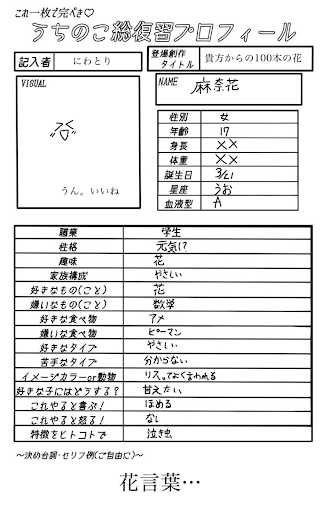 これ一枚で完ペき♡
うちのこ総復習プロフィール
記入者 にわとり
登場創作タイトル 貴方からの100本の花
VISUAL
うん。いいね
NAME 麻奈花
性別 女
年齢 17
身長 ××
体重 ××
誕生日 3/21
星座 うお
血液型 A
職業 学生
性格 元気!?
趣味 花
家族構成 やさしい
好きなもの(こと) 花
嫌いなもの(こと) 数学
好きな食べ物 アメ
嫌いな食べ物 ピーマン
好きなタイプ やさしい
苦手なタイプ 分からない
イメージカラーor動物 リスってよく言われる
好きな子にはどうする? 甘えたい
これやると喜ぶ! ほめる
これやると怒る! なし
特徴をヒトコトで 泣き虫
〜決め台詞・セリフ例(ご自由に)〜
花言葉…